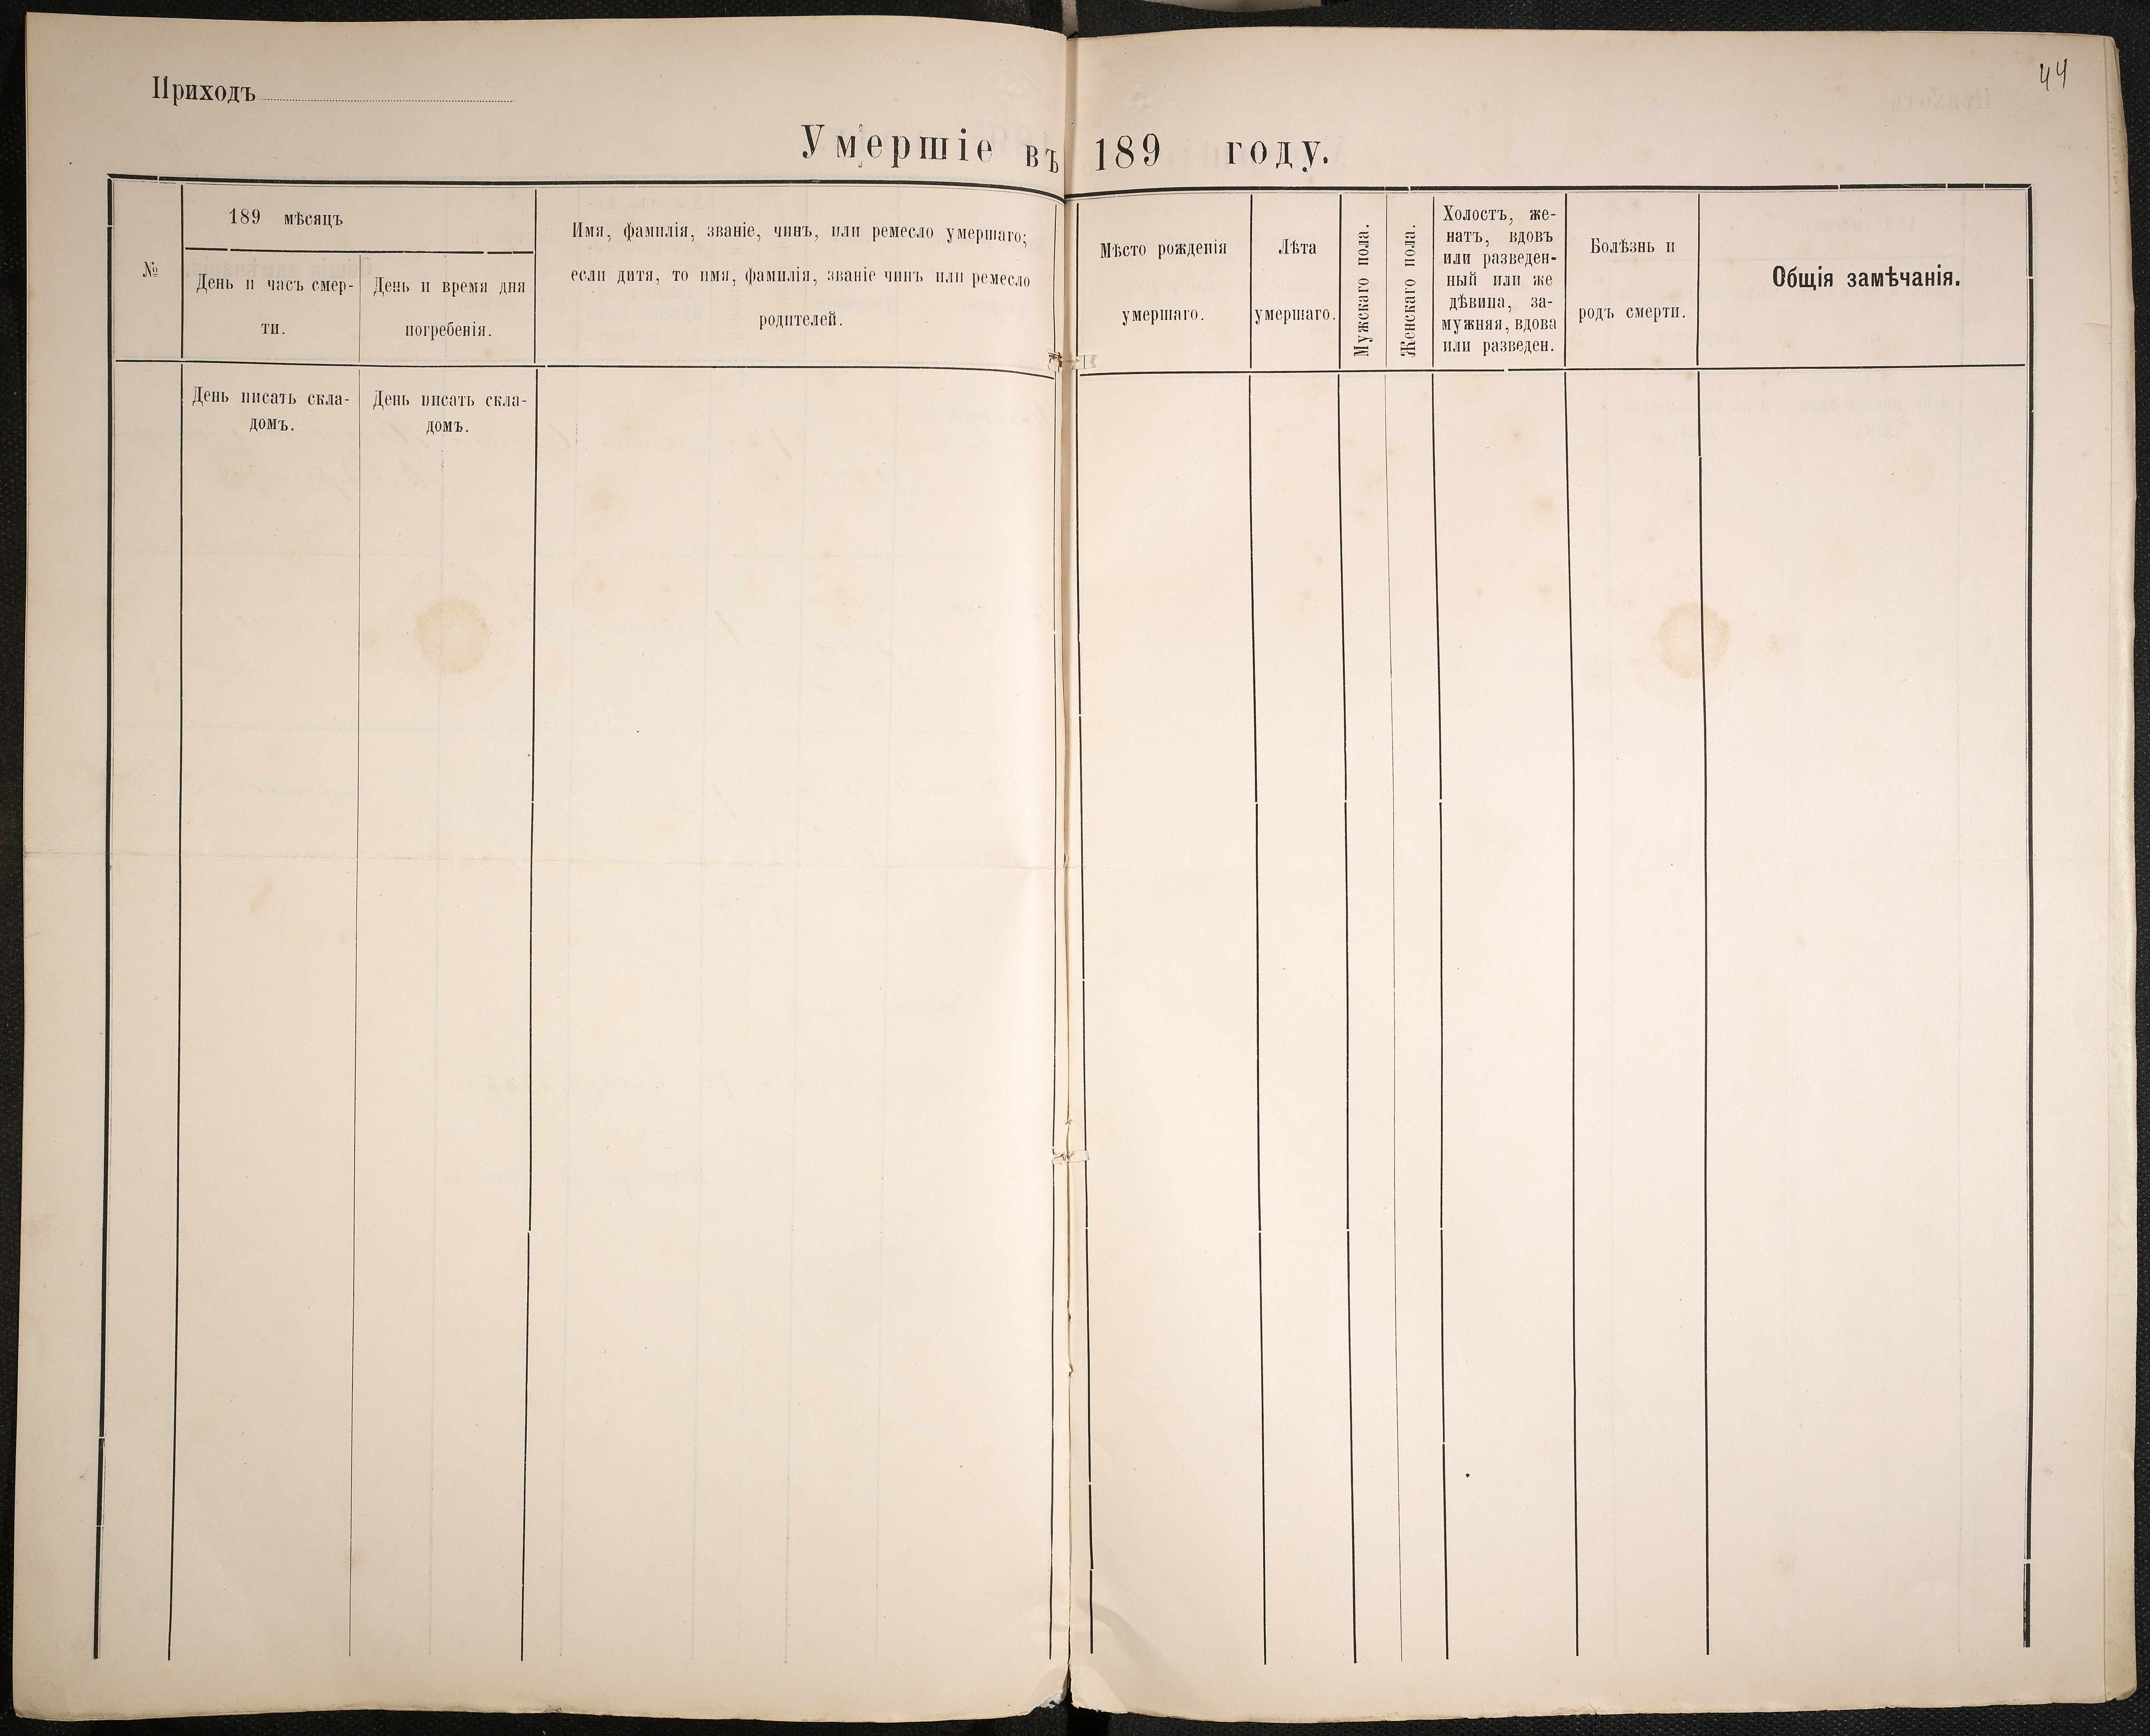 Приходъ
44
Умершіе въ 189 году.
№
189 мѣсяцъ
День и часъ смер-
ти.
День и время дня
погребенія.
Имя, фамилія, званіе, чинъ, или ремесло умершаго;
если дитя, то имя, фамилія, званіе чинъ или ремесло
родителей.
Мѣсто рожденія
умершаго.
Лѣта
умершаго.
Мужскаго пола.
Женскаго пола.
Холостъ, же-
натъ, вдовъ
или разведен-
ный или же
дѣвица, за-
мужняя, вдова
или разведен.
Болѣзнь и
родъ смерти.
Общія замѣчанія.
День писать скла-
домъ.
День писать скла-
домъ.